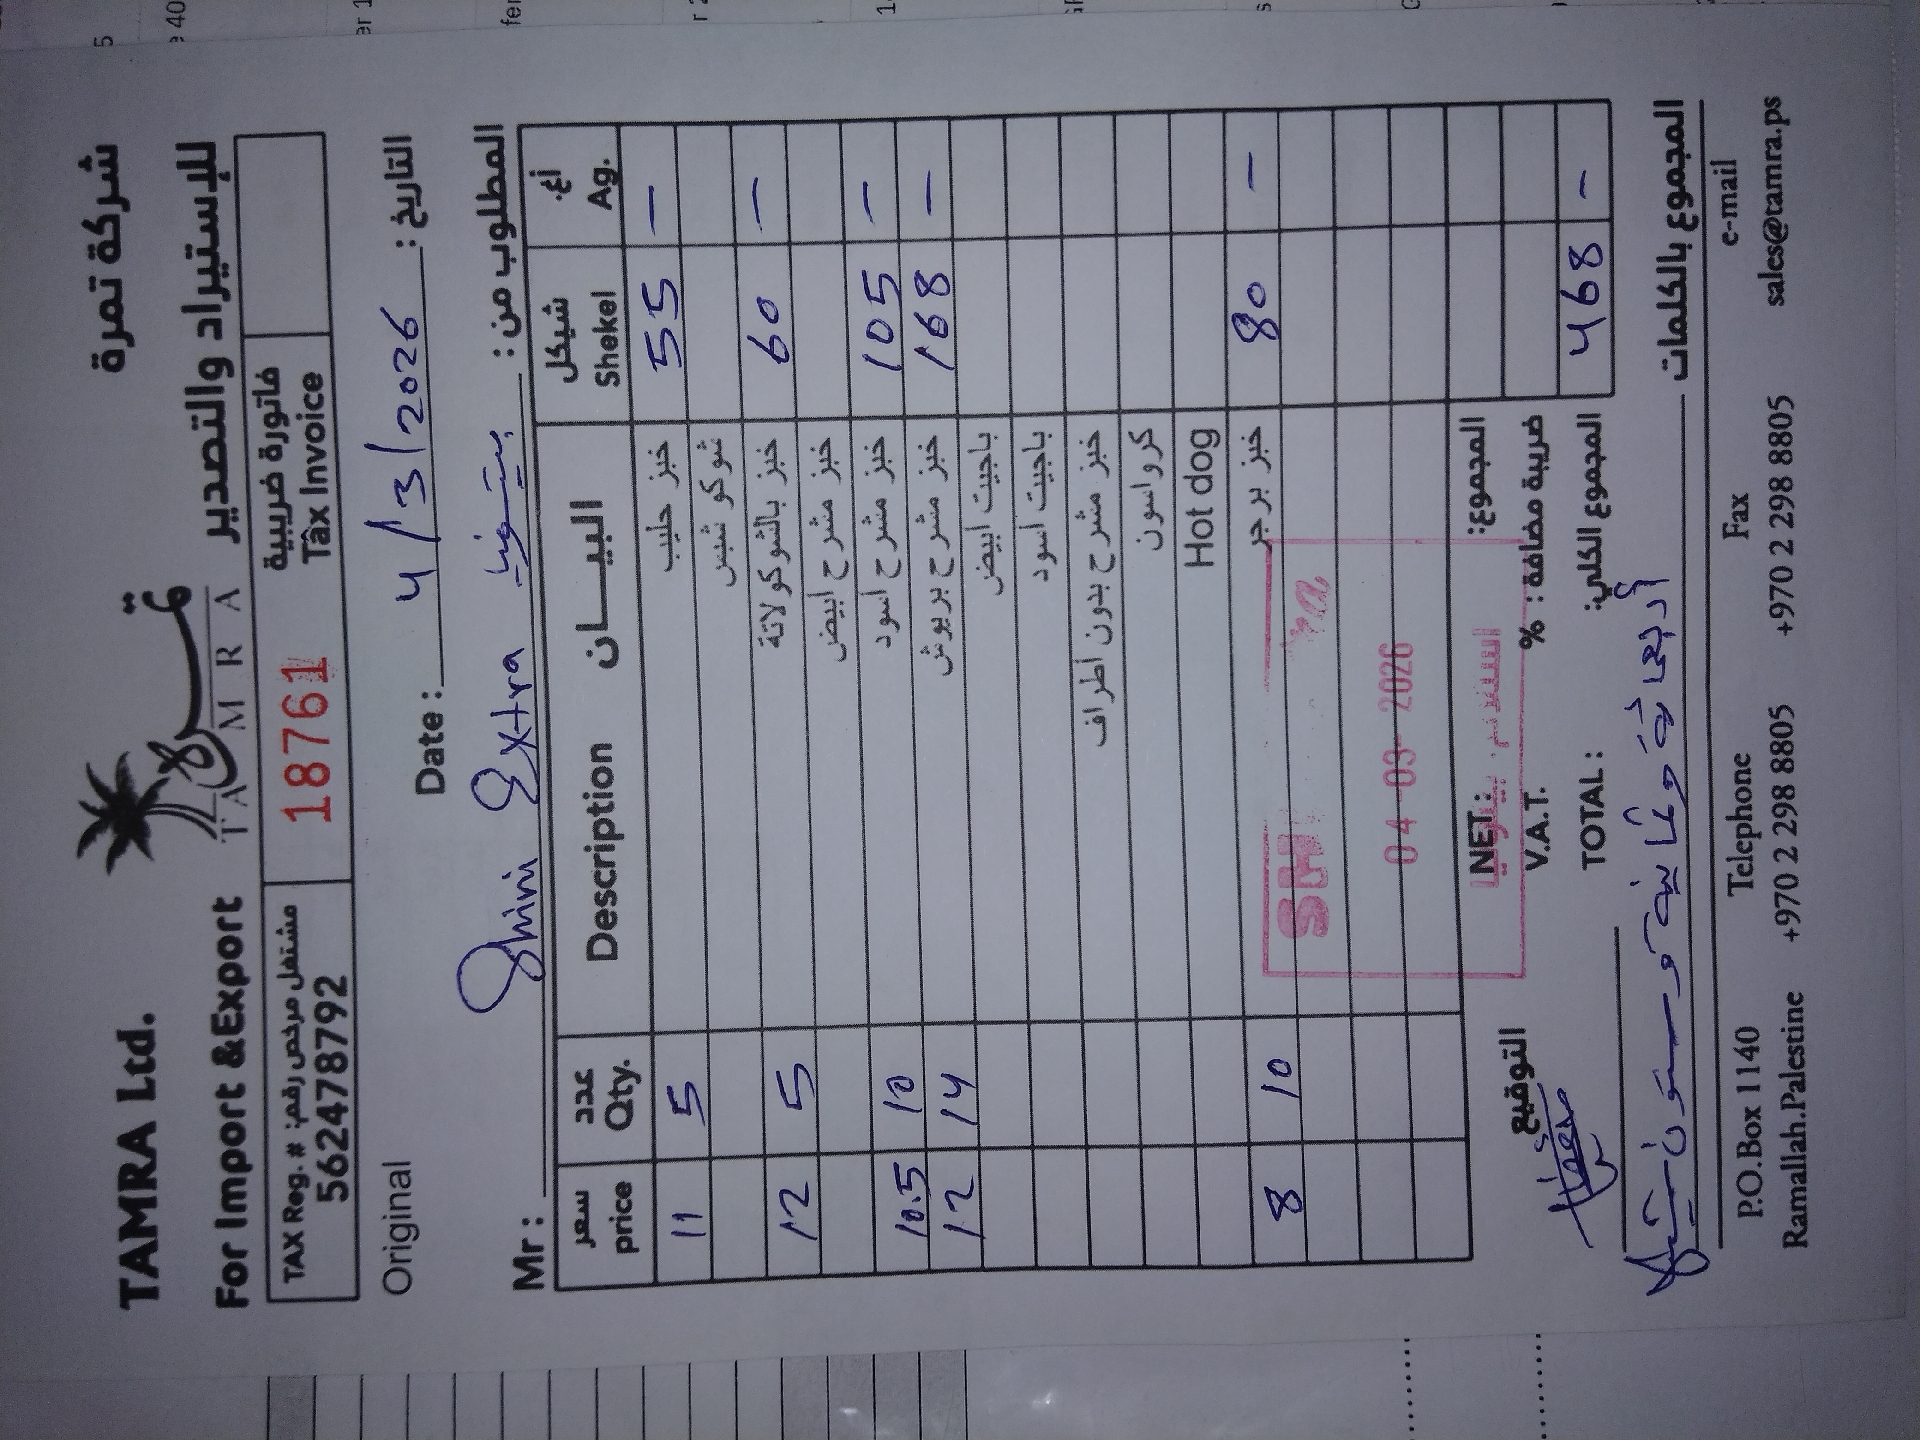 TAMRA Ltd. شركة تمرة
For Import &Export للإستيراد والتصدير
تمرة
TAMRA
TAX Reg. # :مشتغل مرخص رقم
562478792
18761
فاتورة ضريبية
Tax Invoice
Original
Date : 4/3/2026 التاريخ :
Mr : Shini Extra بيتونيا المطلوب من :
سعر price عدد Qty. Description البيـــان شيكل Shekel أغ. Ag.
11 5 خبز حليب 55 —
شوكو شبس
12 5 خبز بالشوكولاتة 60 —
خبز مشرح ابيض
10.5 10 خبز مشرح اسود 105 —
12 14 خبز مشرح بريوش 168 —
باجيت ابيض
باجيت اسود
خبز مشرح بدون اطراف
كرواسون
Hot dog
8 10 خبز برجر 80 —
04-03-2026
NET: المجموع:
V.A.T. % ضريبة مضافة :
TOTAL : المجموع الكلي: 468 —
التوقيع
أربعمائة وثمانية وستون شيكل المجموع بالكلمات
P.O.Box 1140 Telephone Fax e-mail
Ramallah.Palestine +970 2 298 8805 +970 2 298 8805 sales@tamra.ps